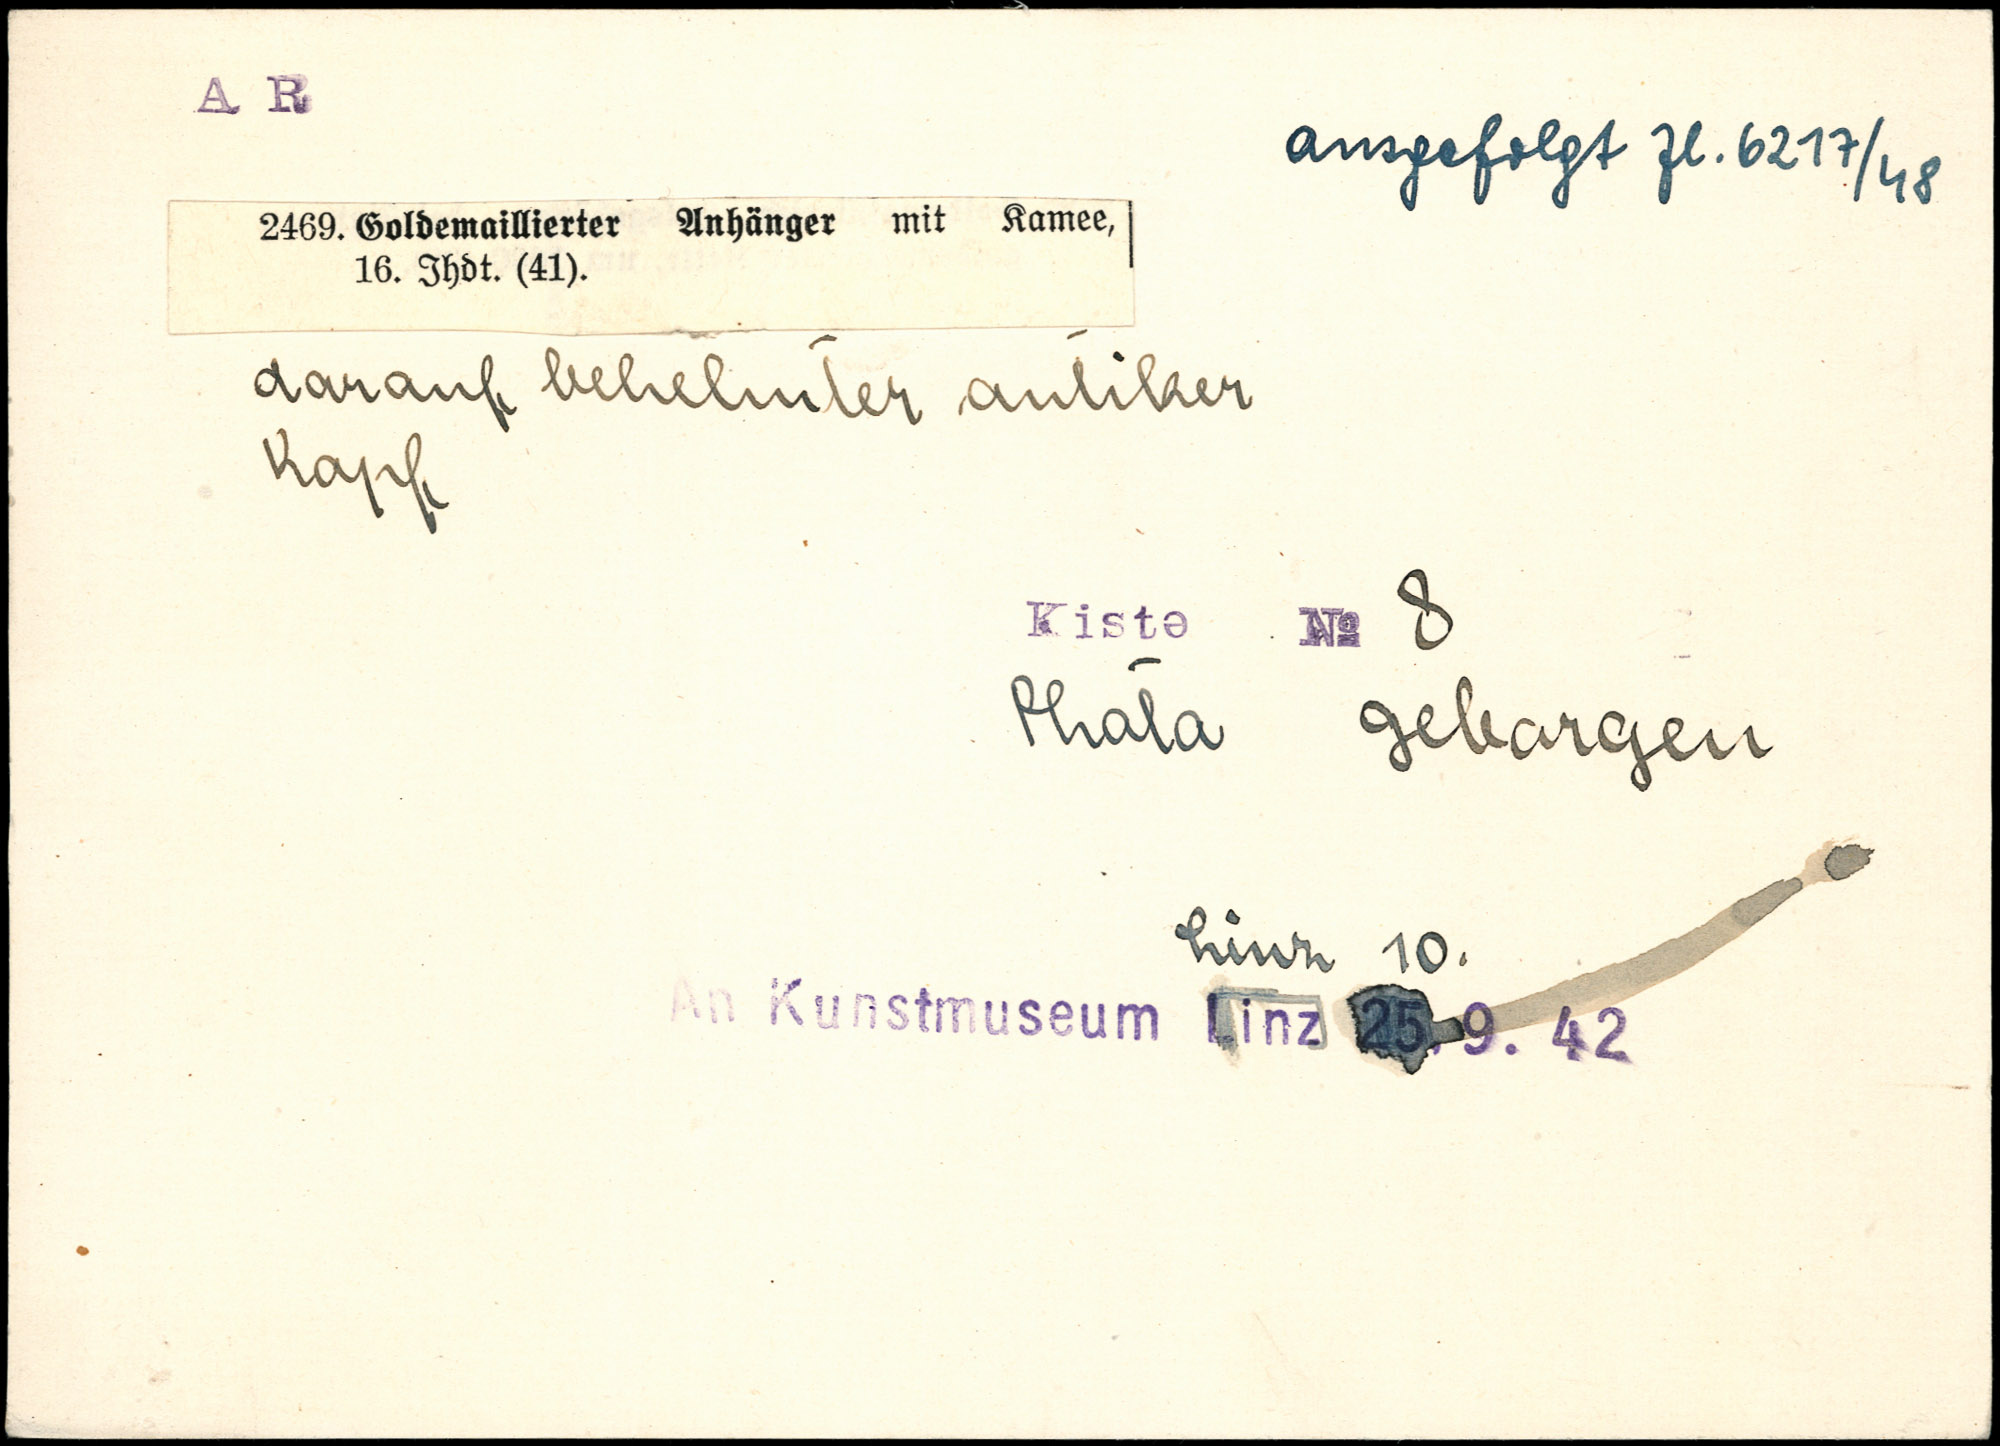 A R
ausgefolgt Zl. 6217/48
2469. Goldemaillierter Anhänger mit Kamee,
16. Jhdt. (41).
darauf behelmter antiker
Kopf
Kiste № 8
Thola geborgen
Linz 10.
An Kunstmuseum Linz 25. 9. 42